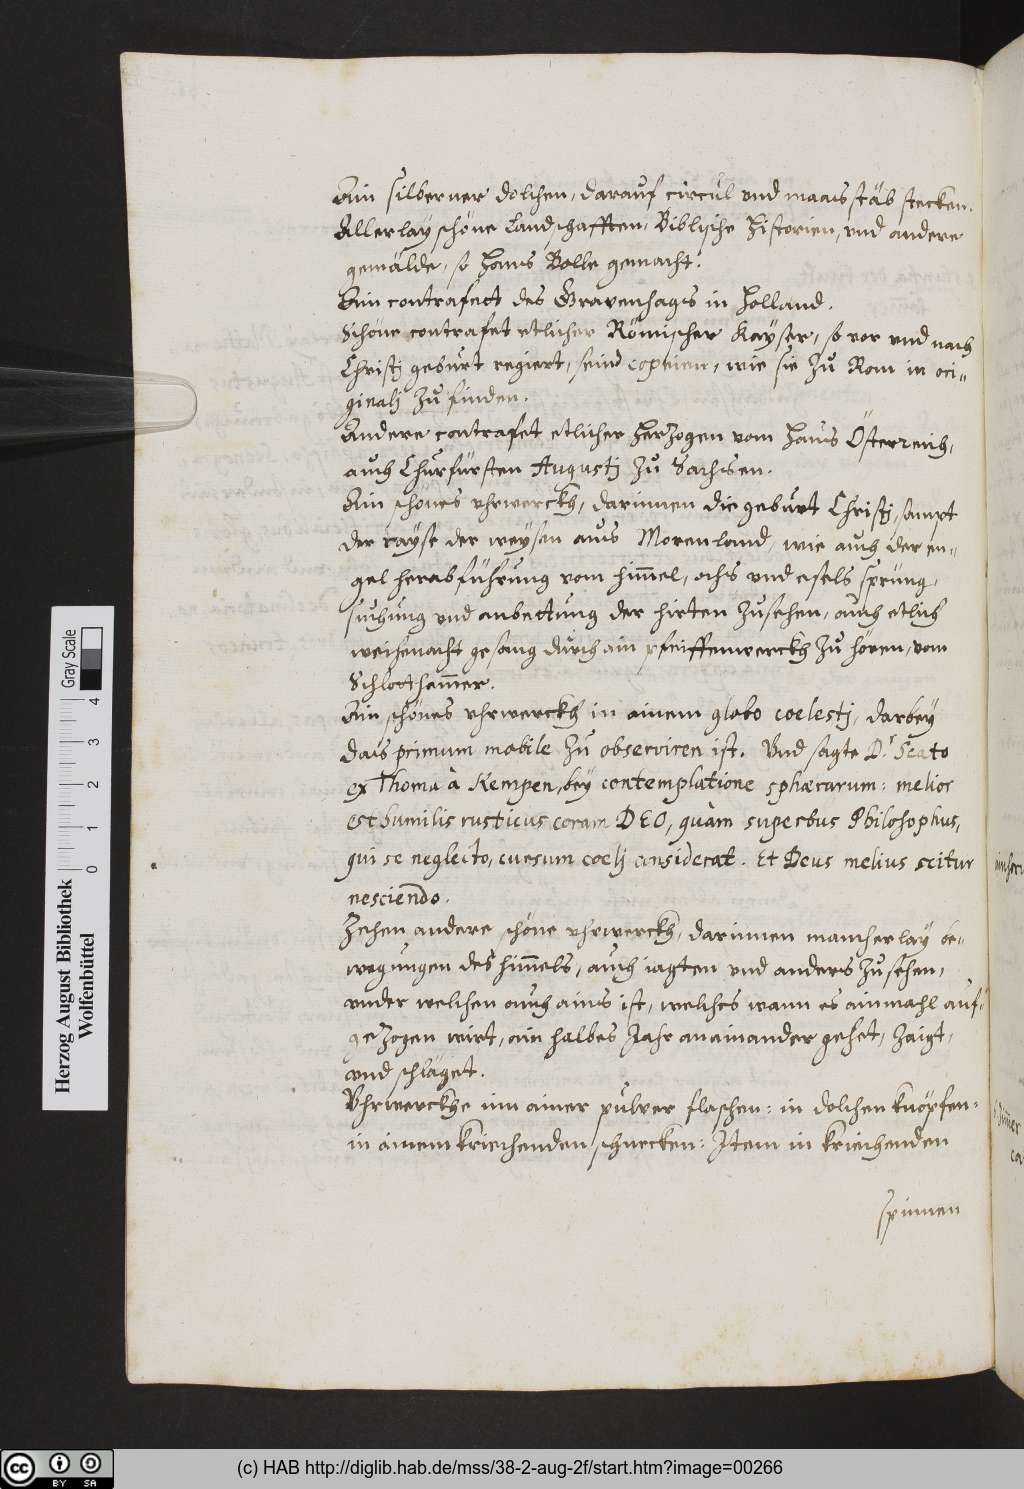 Ain silberner dolchen, darauf circul vnd maais stäb stecken.
Allerlay schöne Landschafften, Biblische Historien, vnd andere
gemälde, so Hans Bolle gemacht.
Ain contrafect des Gravenhags in Holland.
Schöne contrafet etlicher Römischer Kayser, so vor vnd nach
Christj geburt regiert, seind copeien, wie sie zu Rom in ori=
ginalj zu finden.
Andere contrafet etlicher Herzogen vom Haus Österreich,
auch Churfürsten Augustj zu Sachsen.
Ain schönes vhrwerckh, darinnen die geburt Christj, sampt
der rayse der weysen aus Morenland, wie auch der en=
gel herabführung vom himmel, ochs vnd esels sprüng,
suchung vnd anbettung der hirten zusehen, auch etlich
weihenacht gesang durch ain pfeiffenwerckh zu hören, vom
Schlotthammer.
Ain schönes vhrwerckh in ainem globo coelestj, darbey
dais primum mobile zu observiren ist. Vnd sagte Dr Scato
ex Thoma à Kempen, bey contemplatione sphærarum: melior
est humilis rusticus coram DEO, quàm superbus Philosophus,
qui se neglecto, cursum coelj considerat. Et Deus melius scitur
nesciendo.
Zehen andere schöne vhrwerckh, darinnen mancherlay be=
wegungen des himmels, auch iagten vnd anders zusehen,
vnder welchen auch ains ist, welches wann es ainmahl auf=
gezogen wirt, ain halbes Jahr anainander gehet, zaigt,
vnd schläget.
Vhrwerckhe inn ainer pulver flaschen: in dolchen knöpfen:
in ainem kriechenden schnecken: Item in kriechenden
spinnen
Herzog August Bibliothek
Wolfenbüttel
Gray Scale
0 1 2 3 4
(c) HAB http://diglib.hab.de/mss/38-2-aug-2f/start.htm?image=00266
BY SA